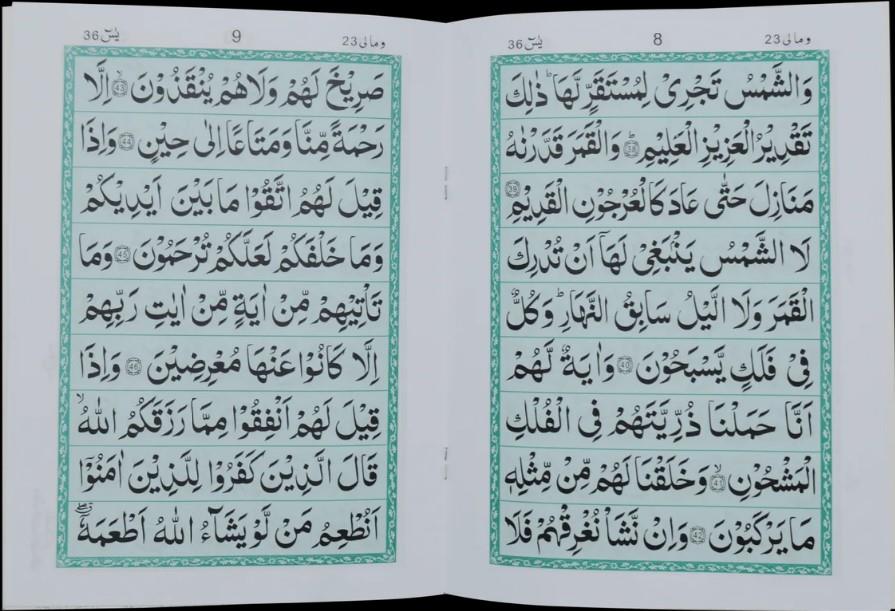 ومالی23 8 یٰسٓ36
وَالشَّمْسُ تَجْرِیْ لِمُسْتَقَرٍّ لَّهَا ؕ ذٰلِكَ
تَقْدِیْرُ الْعَزِیْزِ الْعَلِیْمِ ؕ ﴿38﴾ وَالْقَمَرَ قَدَّرْنٰهُ
مَنَازِلَ حَتّٰی عَادَ كَالْعُرْجُوْنِ الْقَدِیْمِ ﴿39﴾
لَا الشَّمْسُ یَنْۢبَغِیْ لَهَاۤ اَنْ تُدْرِكَ
الْقَمَرَ وَلَا الَّیْلُ سَابِقُ النَّهَارِ ؕ وَكُلٌّ
فِیْ فَلَكٍ یَّسْبَحُوْنَ ﴿40﴾ وَاٰیَةٌ لَّهُمْ
اَنَّا حَمَلْنَا ذُرِّیَّتَهُمْ فِی الْفُلْكِ
الْمَشْحُوْنِ ۙ ﴿41﴾ وَخَلَقْنَا لَهُمْ مِّنْ مِّثْلِهٖ
مَا یَرْكَبُوْنَ ﴿42﴾ وَاِنْ نَّشَاْ نُغْرِقْهُمْ فَلَا
ومالی23 9 یٰسٓ36
صَرِیْخَ لَهُمْ وَلَا هُمْ یُنْقَذُوْنَ ۙ ﴿43﴾ اِلَّا
رَحْمَةً مِّنَّا وَمَتَاعًا اِلٰی حِیْنٍ ﴿44﴾ وَاِذَا
قِیْلَ لَهُمُ اتَّقُوْا مَا بَیْنَ اَیْدِیْكُمْ
وَمَا خَلْفَكُمْ لَعَلَّكُمْ تُرْحَمُوْنَ ﴿45﴾ وَمَا
تَاْتِیْهِمْ مِّنْ اٰیَةٍ مِّنْ اٰیٰتِ رَبِّهِمْ
اِلَّا كَانُوْا عَنْهَا مُعْرِضِیْنَ ﴿46﴾ وَاِذَا
قِیْلَ لَهُمْ اَنْفِقُوْا مِمَّا رَزَقَكُمُ اللّٰهُ ۙ
قَالَ الَّذِیْنَ كَفَرُوْا لِلَّذِیْنَ اٰمَنُوْۤا
اَنُطْعِمُ مَنْ لَّوْ یَشَآءُ اللّٰهُ اَطْعَمَهٗۤ